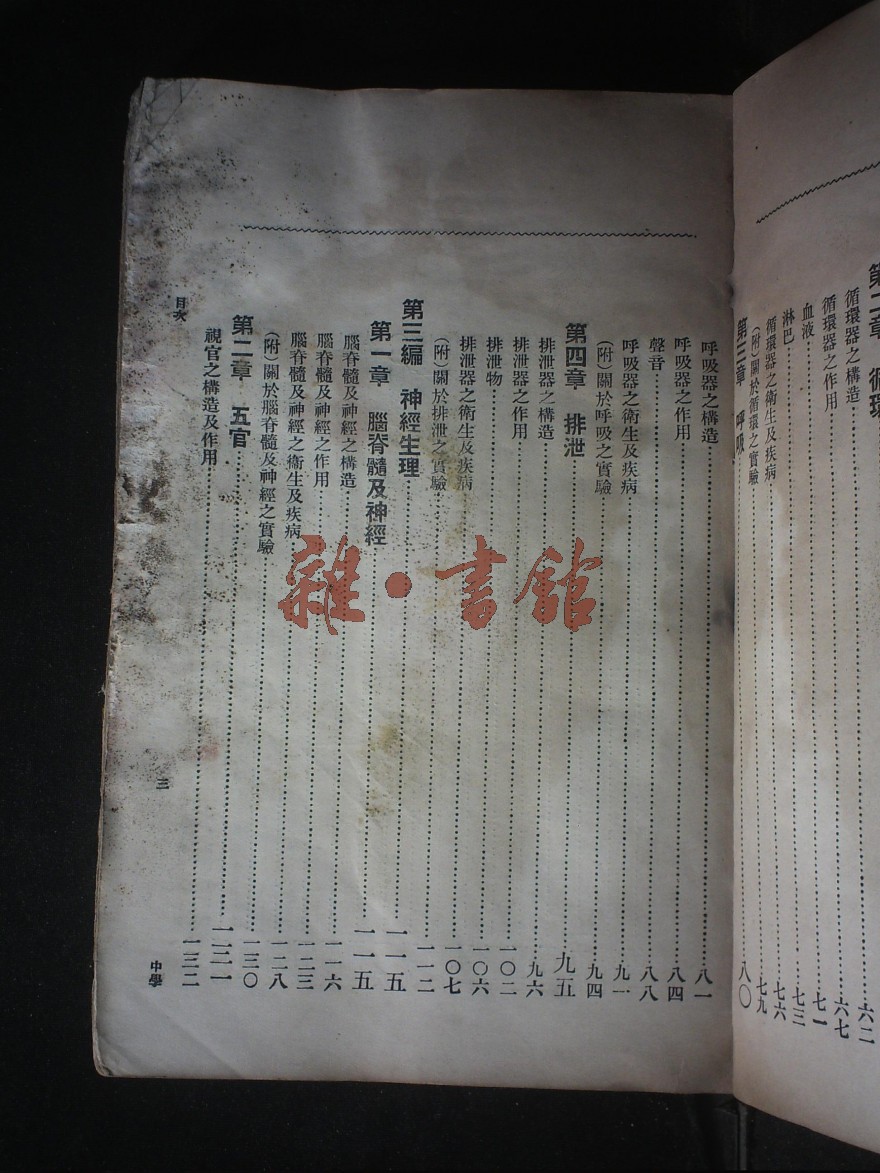 第二章 循環
循環器之構造……六二
循環器之作用……六七
血液……七一
淋巴……七三
循環器之衛生及疾病……七六
(附)關於循環之實驗……七九
第三章 呼吸……八〇
呼吸器之構造……八一
呼吸器之作用……八四
聲音……八八
呼吸器之衛生及疾病……九一
(附)關於呼吸之實驗……九四
第四章 排泄……九五
排泄器之構造……九六
排泄器之作用……一〇二
排泄物……一〇六
排泄器之衛生及疾病……一〇七
(附)關於排泄之實驗……一一二
第三編 神經生理……一一五
第一章 腦脊髓及神經……一一五
腦脊髓及神經之構造……一一六
腦脊髓及神經之作用……一二三
腦脊髓及神經之衛生及疾病……一二八
(附)關於腦脊髓及神經之實驗……一三〇
第二章 五官……一三一
視官之構造及作用……一三二
目次
三
中學
雜·書館